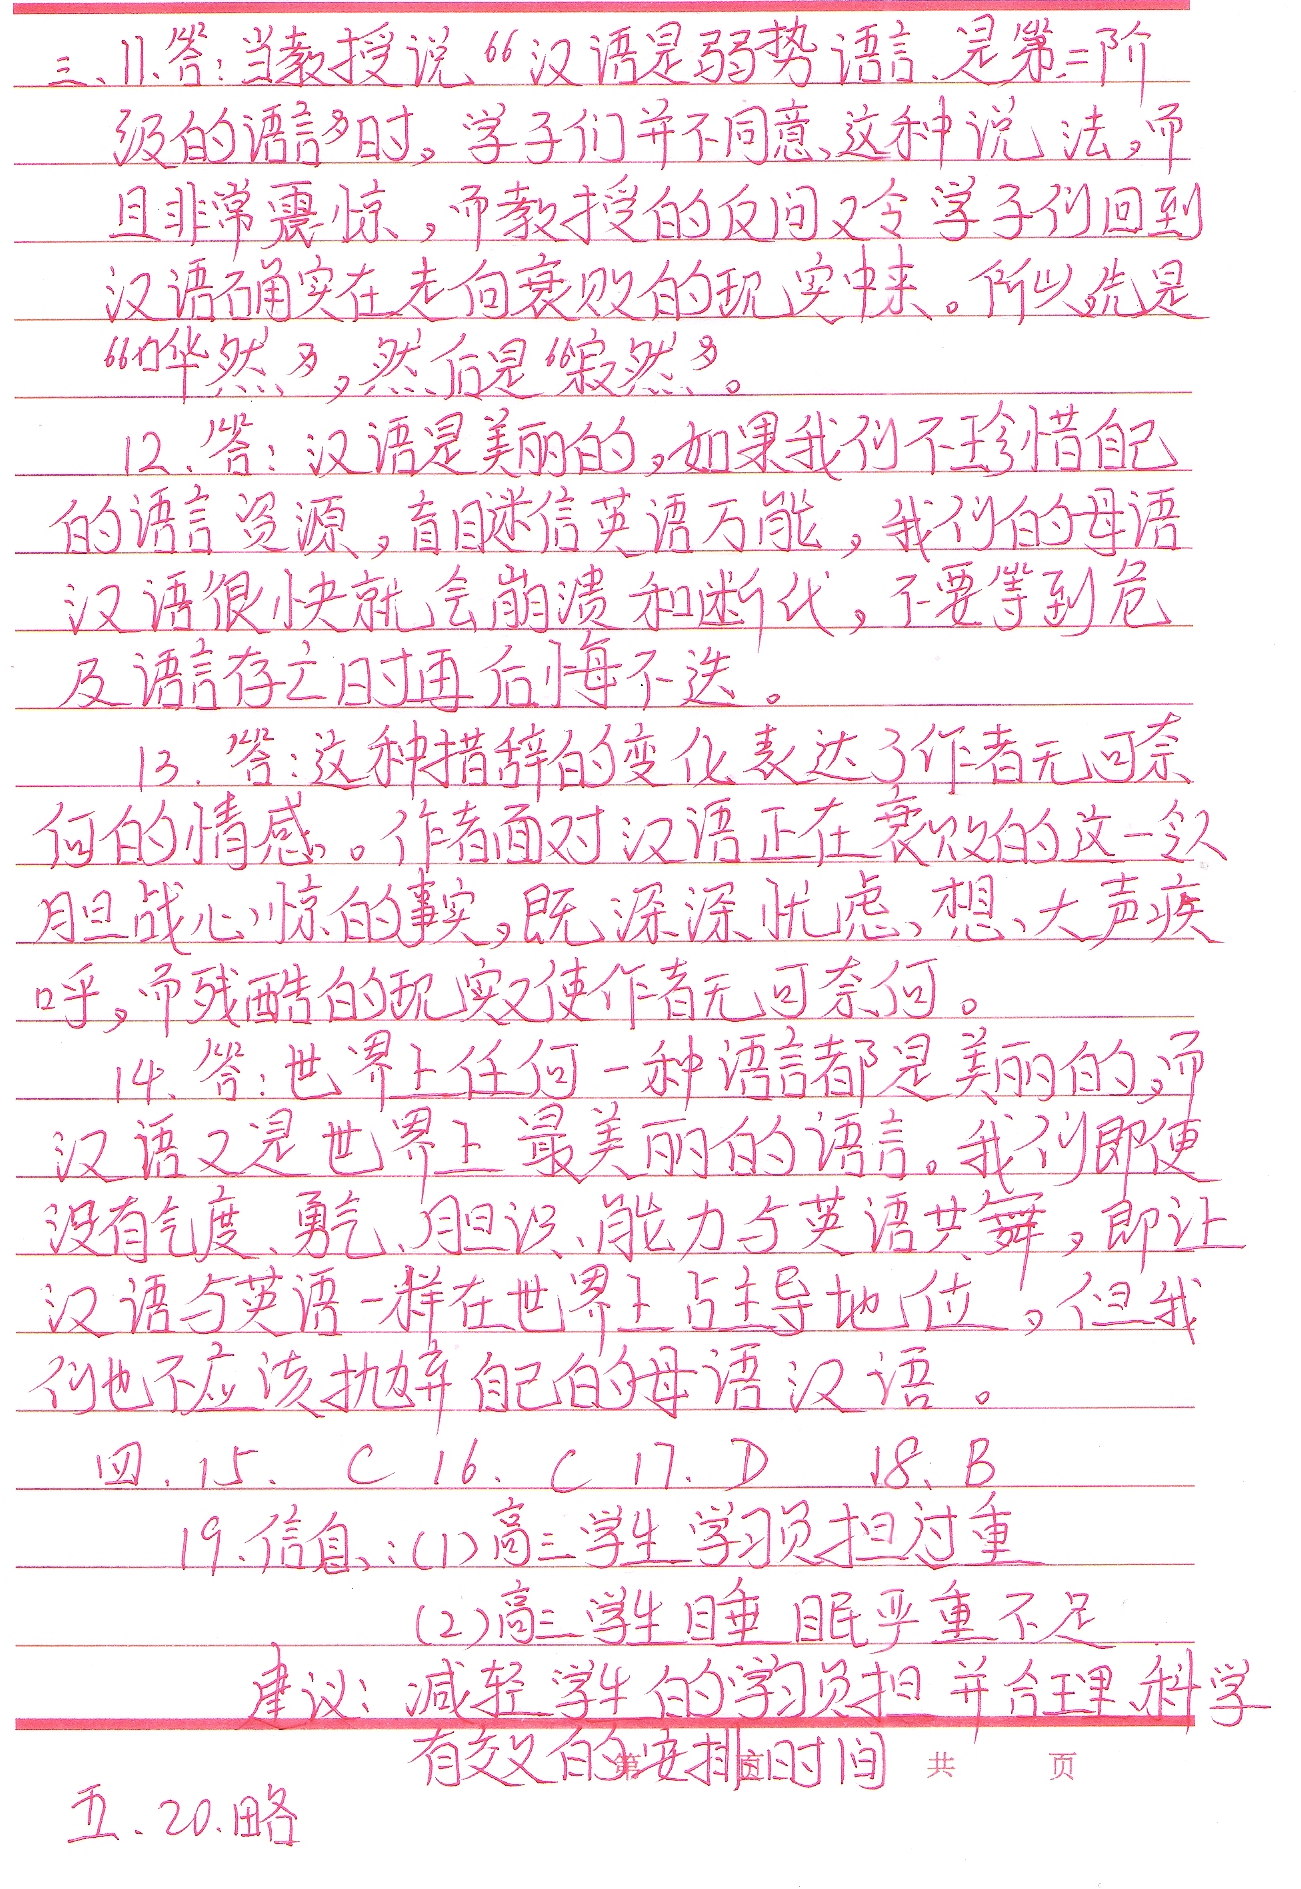 三、11、答：当教授说“汉语是弱势语言、是第二阶
级的语言”时，学子们并不同意这种说法，而
且非常震惊，而教授的反问又令学子们回到
汉语确实在走向衰败的现实中来。所以先是
“哗然”，然后是“寂然”。
12、答：汉语是美丽的，如果我们不珍惜自己
的语言资源，盲目迷信英语万能，我们的母语
汉语很快就会崩溃和断代，不要等到危
及语言存亡时再后悔不迭。
13.答：这种措辞的变化表达了作者无可奈
何的情感。作者面对汉语正在衰败的这一令人
胆战心惊的事实，既深深忧虑、想大声疾
呼，而残酷的现实又使作者无可奈何。
14、答：世界上任何一种语言都是美丽的，而
汉语又是世界上最美丽的语言。我们即使
没有气度、勇气、胆识、能力与英语共舞，即让
汉语与英语一样在世界上占主导地位，但我
们也不应该抛弃自己的母语汉语。
四、15、C 16、C 17、D 18、B
19、信息：(1)高三学生学习负担过重
(2)高三学生睡眠严重不足
建议：减轻学生的学习负担并合理科学
有效的安排时间
第 页 共 页
五、20.略